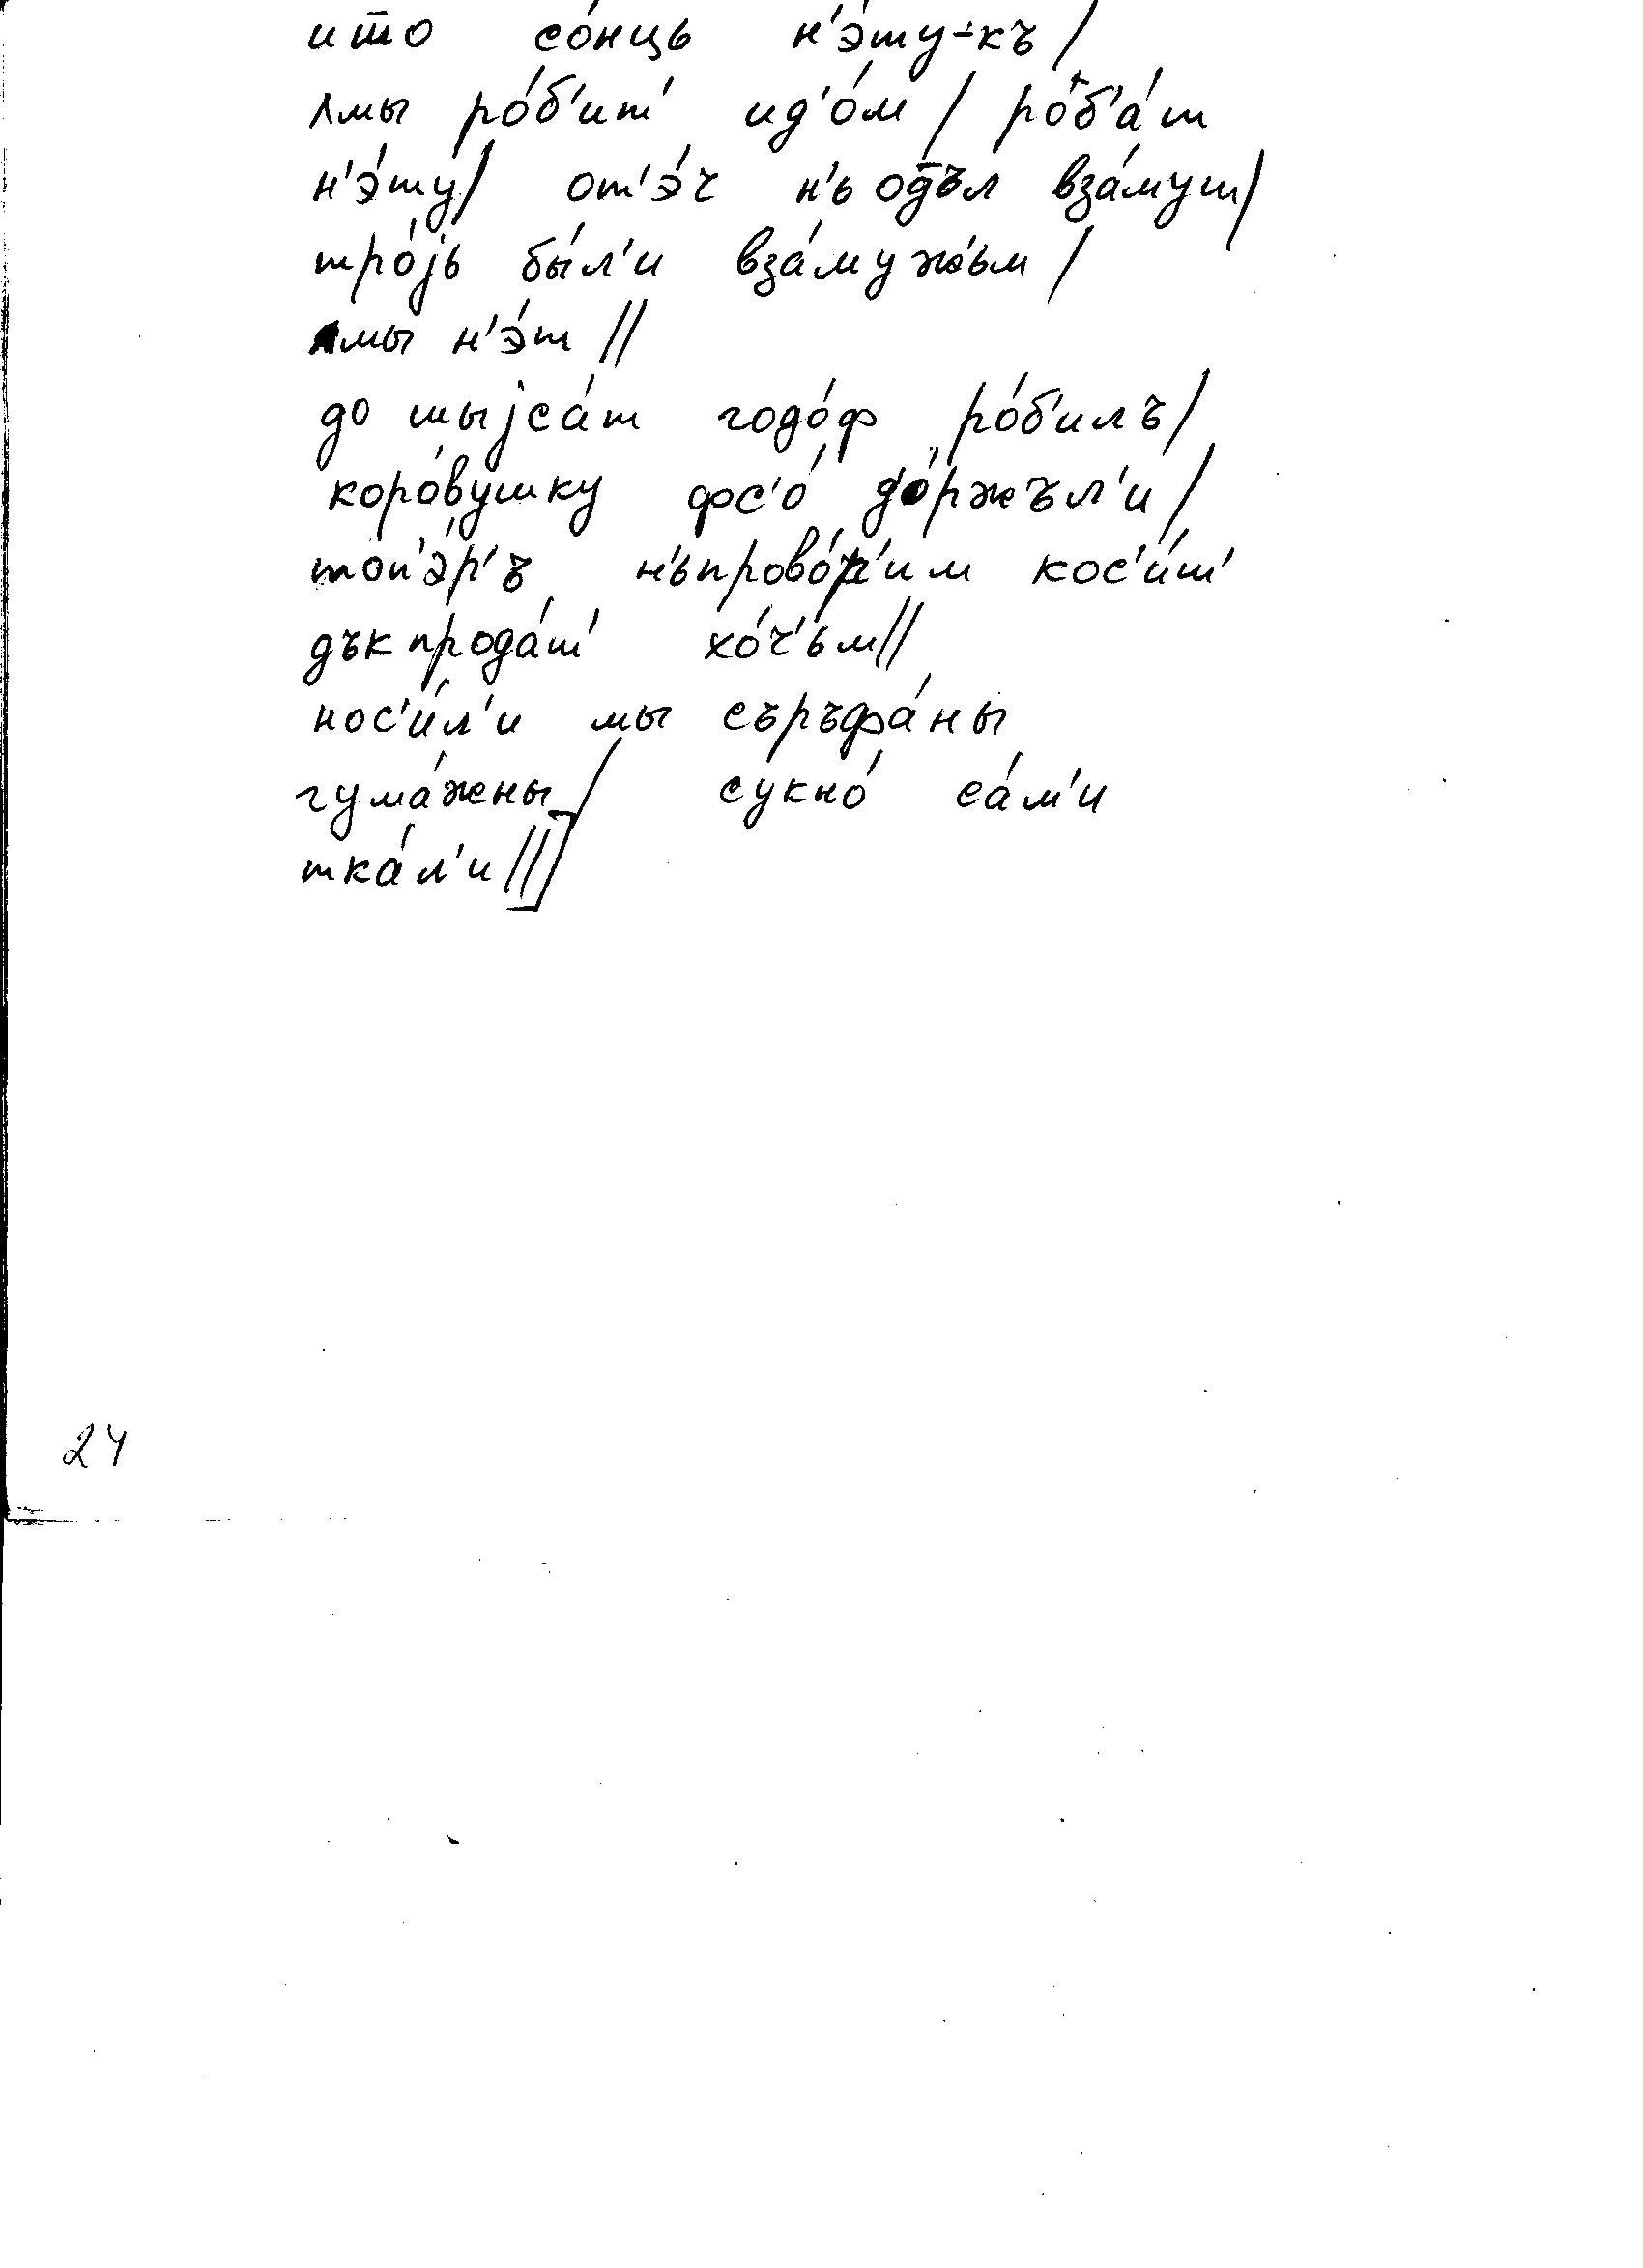 ит̄о со́нць н'э́ту-къ/
ʌмы ро́б'ит' ид'о́м/ ро́б'а́т
н'э́ту/ от'э́ч н'ь од̄ъл вза́муш/
тро́јь бы́л'и вза́мужьм/
ʌмы н'э́т//
до шыјса́т годо́ф ро́б'илъ/
коро́вушку фс'о́ д'о́ржъл'и/
топ'э́р'ъ н'ьпрово́р'им кос'и́т'
дък прода́т' хо́ч'ьм//
нос'и́л'и мы съръфа́ны
гума́жны/ сукно́ са́м'и
тка́л'и//]
24